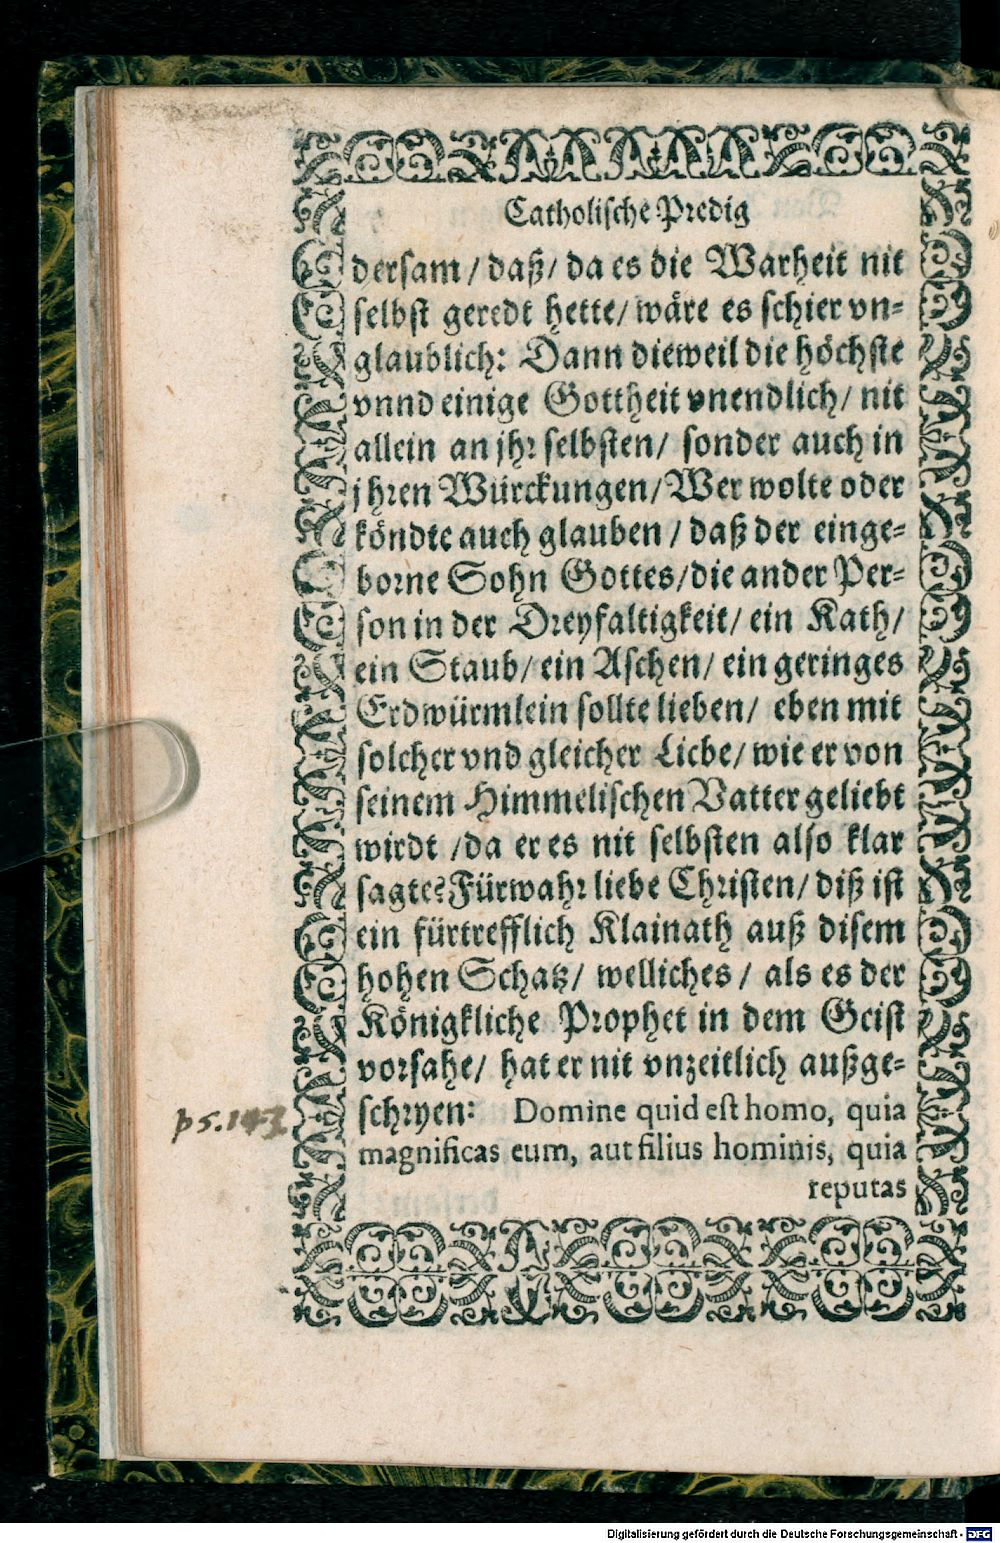 Catholische Predig
dersam / daß / da es die Warheit nit
selbst geredt hette / wäre es schier vn-
glaublich: Dann dieweil die höchste
vnnd einige Gottheit vnendlich / nit
allein an jhr selbsten / sonder auch in
jhren Würckungen / Wer wolte oder
köndte auch glauben / daß der einge-
borne Sohn Gottes / die ander Per-
son in der Dreyfaltigkeit / ein Kath /
ein Staub / ein Aschen / ein geringes
Erdwürmlein sollte lieben / eben mit
solcher vnd gleicher Liebe / wie er von
seinem Himmelischen Vatter geliebt
wirdt / da er es nit selbsten also klar
sagte? Fürwahr liebe Christen / diß ist
ein fürtrefflich Klainath auß disem
hohen Schatz / welliches / als es der
Königkliche Prophet in dem Geist
vorsahe / hat er nit vnzeitlich außge-
schryen: Domine quid est homo, quia
magnificas eum, aut filius hominis, quia
reputas
ps. 143
Digitalisierung gefördert durch die Deutsche Forschungsgemeinschaft - DFG